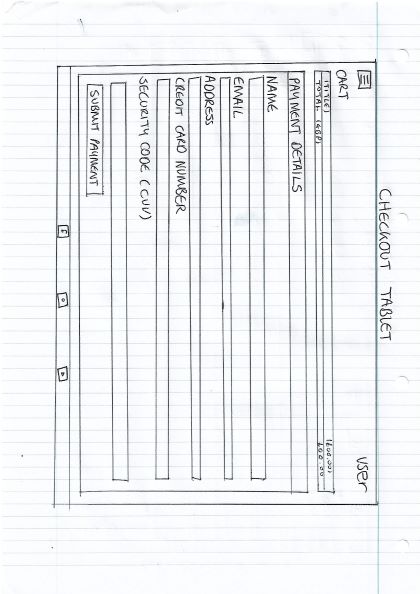 CHECKOUT TABLET
user
CART
(TITLE) (£00.00)
TOTAL (GBP) £00.00
PAYMENT DETAILS
NAME
EMAIL
ADDRESS
CREDIT CARD NUMBER
SECURITY CODE (CVV)
SUBMIT PAYMENT